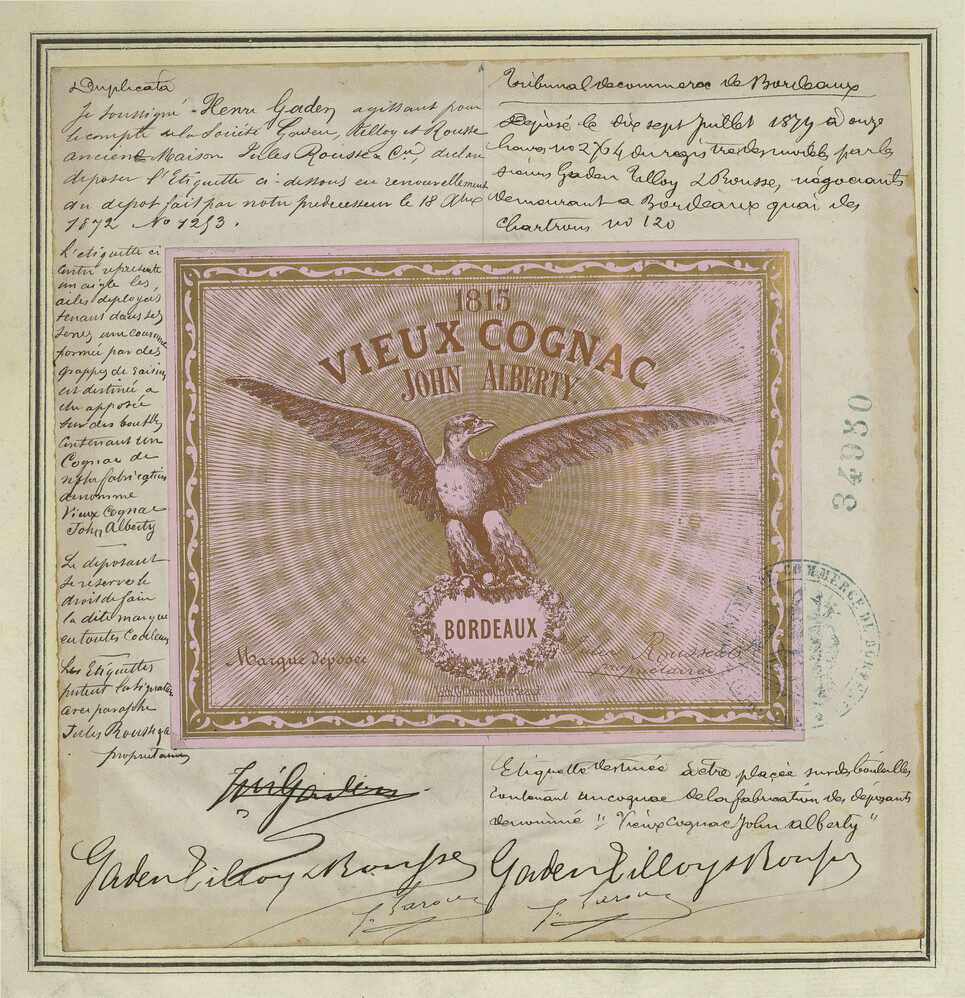 Duplicata
Je soussigné Henri Gaden agissant pour
le compte de la Société Gaden, Tilloy et Rousse
ancienne Maison Jules Rousse & Cie, déclare
déposer l'Etiquette ci-dessous en renouvellement
du dépot fait par notre prédécesseur le 18
1872 No 1253.
Tribunal de commerce de Bordeaux
Déposé le dix sept Juillet 1879 à onze
heures no 2764 du registre des modèles par les
sieurs Gaden Tilloy & Rousse, négociants
demeurant à Bordeaux quai des
Chartrons no 120
L'étiquette ci
contre représente
un aigle les
ailes déployées
tenant dans ses
serres une couronne
formée par des
grappes de raisin
est destinée à
être apposée
sur des bouteilles
contenant un
Cognac de
notre fabrication
dénommé
Vieux Cognac
John Alberty
Le déposant
se réserve le
droit de faire
la dite marque
en toutes couleurs
Les Etiquettes
portent la signature
avec paraphe
Jules Rousse &
propriétaires
1815
VIEUX COGNAC
JOHN ALBERTY.
BORDEAUX
Marque déposée
Jules Rousse
Propriétaire
Bordeaux
34950
COMMERCE DE BORDEAUX
Etiquette destinée à être placée sur des bouteilles
contenant un cognac de la fabrication des déposants
dénommé "Vieux Cognac John Alberty"
Henri Gaden
Gaden Tilloy & Rousse
Gaden Tilloy & Rousse